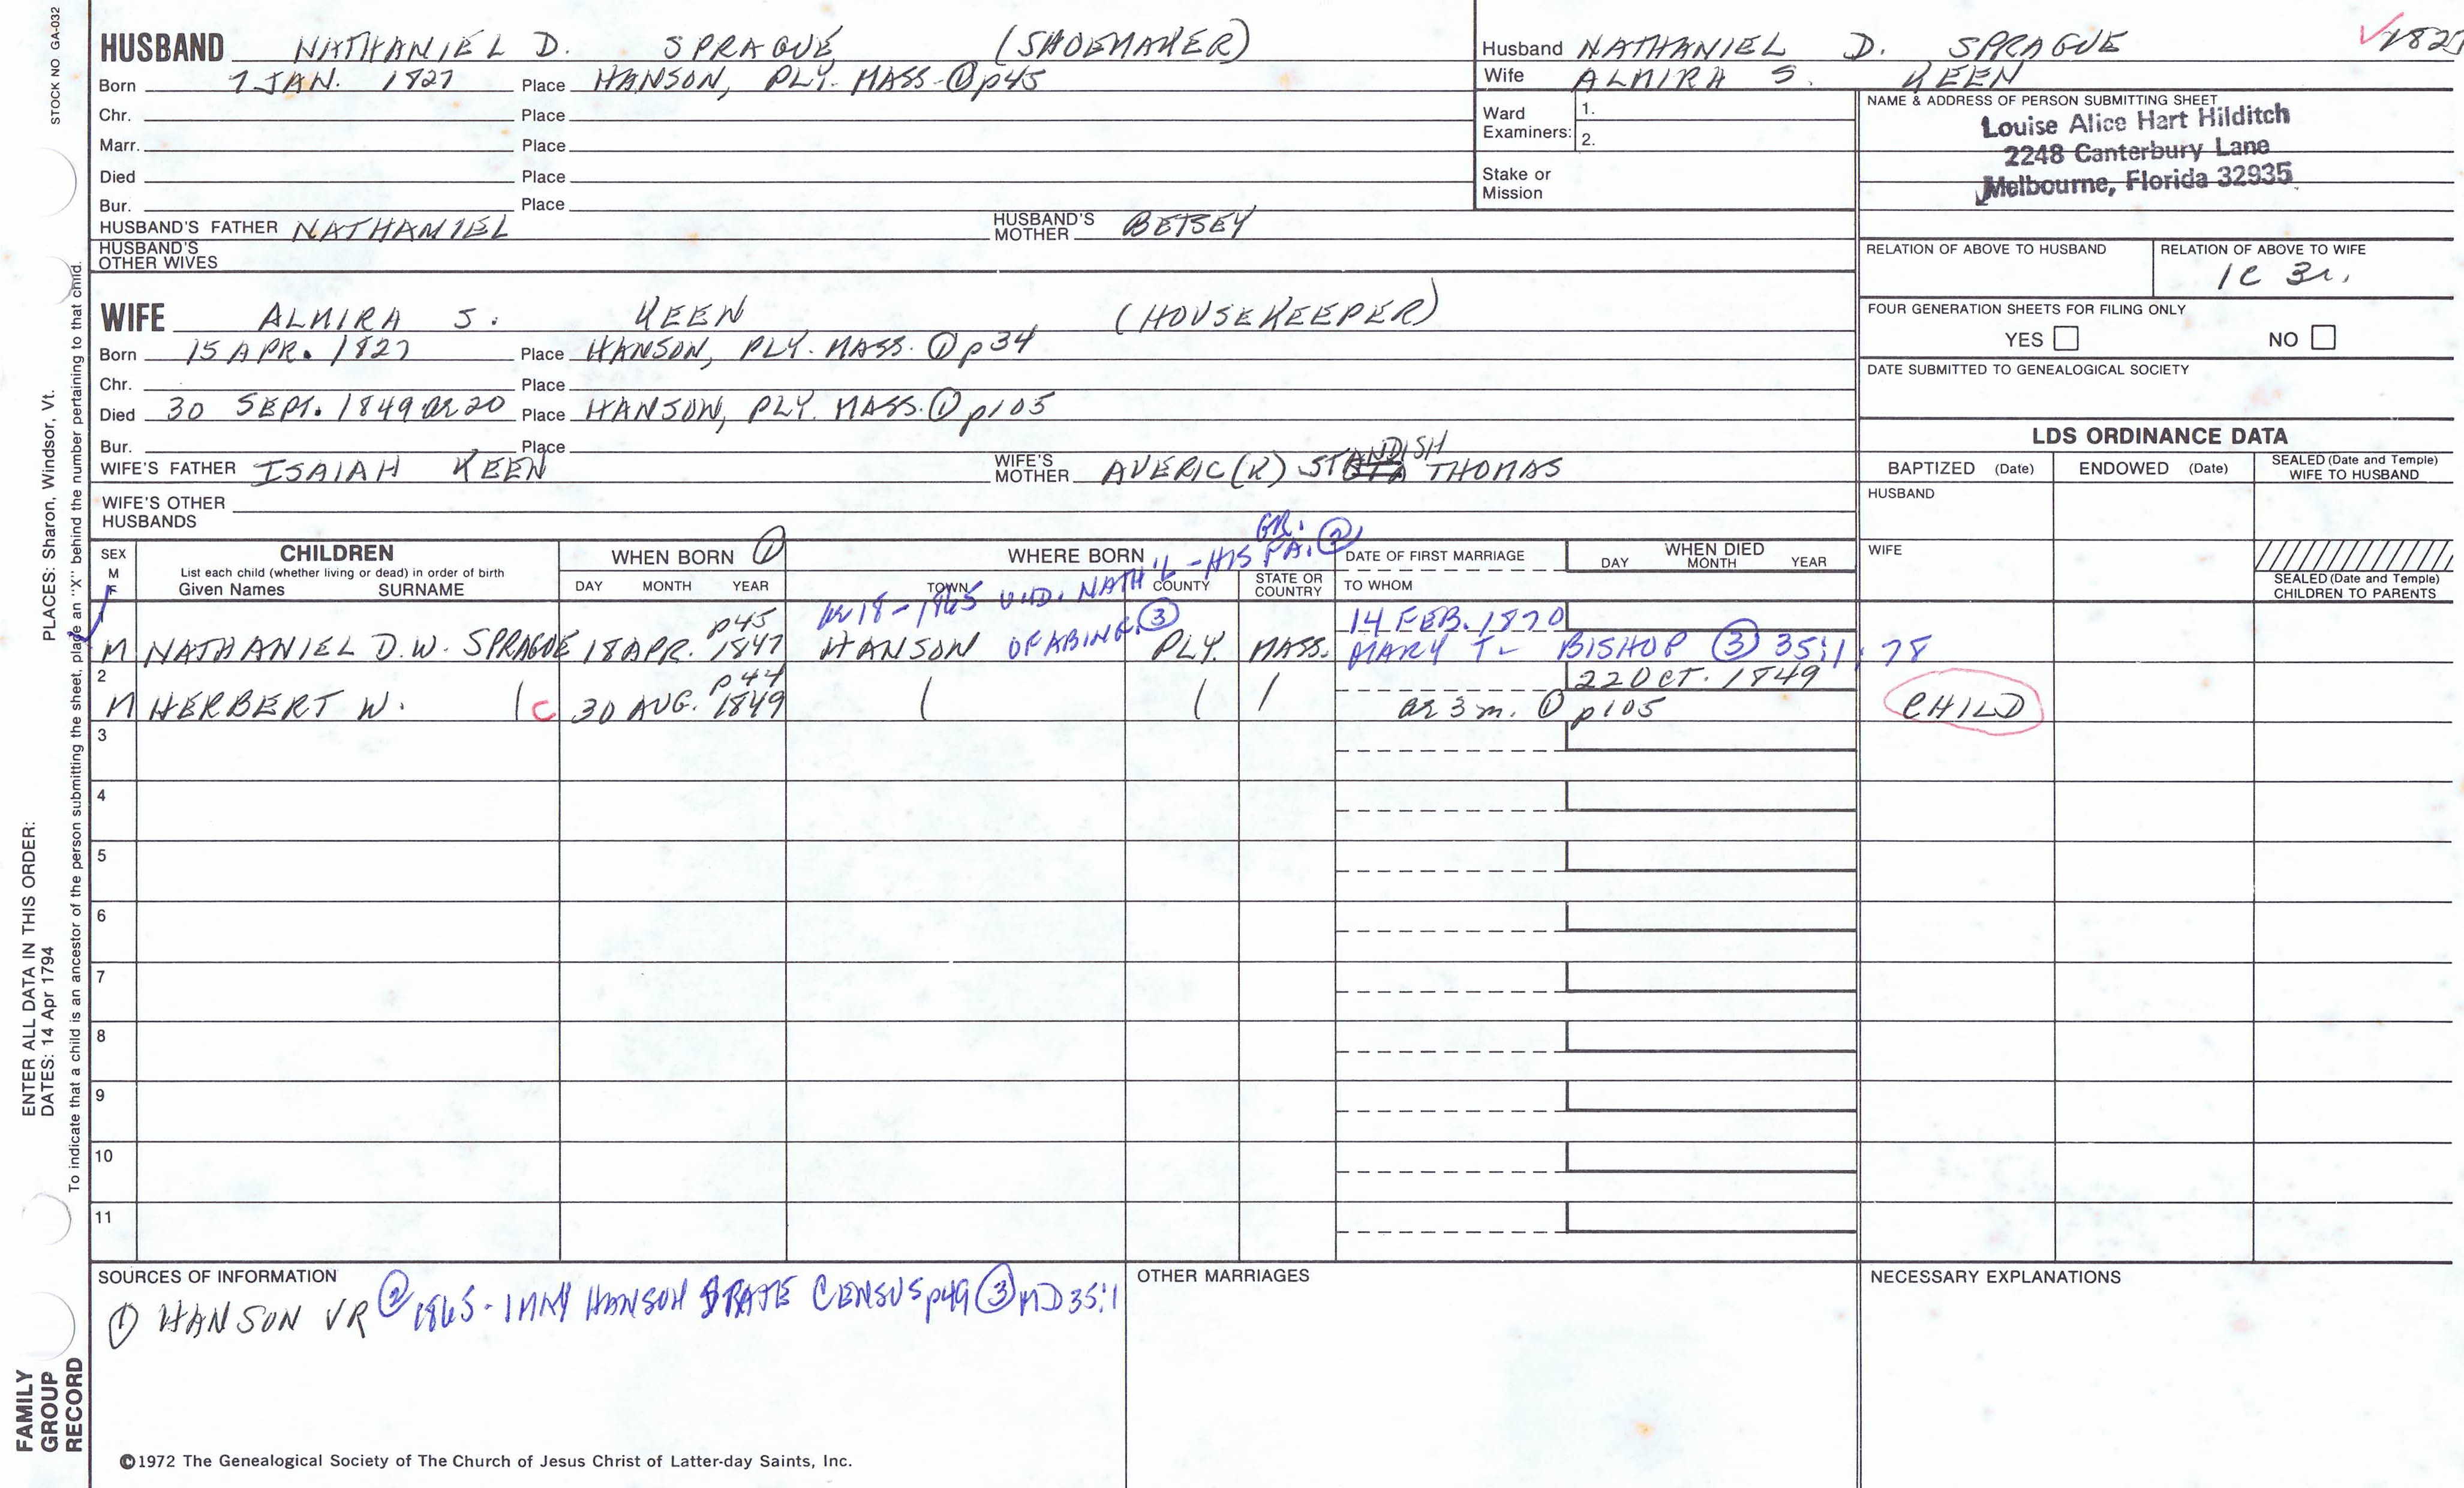 STOCK NO. GA-032
HUSBAND NATHANIEL D. SPRAGUE (SHOEMAKER)
Born 7 JAN. 1827 Place HANSON, PLY. MASS. ① p45
Chr. Place
Marr. Place
Died Place
Bur. Place
HUSBAND'S FATHER NATHANIEL HUSBAND'S MOTHER BETSEY
HUSBAND'S OTHER WIVES
Husband NATHANIEL D. SPRAGUE
Wife ALMIRA S. KEEN
Ward Examiners: 1.
2.
Stake or Mission
NAME & ADDRESS OF PERSON SUBMITTING SHEET
Louise Alice Hart Hilditch
2248 Canterbury Lane
Melbourne, Florida 32935
RELATION OF ABOVE TO HUSBAND RELATION OF ABOVE TO WIFE
1C 3r.
FOUR GENERATION SHEETS FOR FILING ONLY
YES NO
DATE SUBMITTED TO GENEALOGICAL SOCIETY
WIFE ALMIRA S. KEEN (HOUSEKEEPER)
Born 15 APR. 1827 Place HANSON, PLY. MASS. ① p34
Chr. Place
Died 30 SEPT. 1849 ae 20 Place HANSON, PLY. MASS. ① p105
Bur. Place
WIFE'S FATHER ISAIAH KEEN WIFE'S MOTHER AVERIC(K) STANDISH THOMAS
WIFE'S OTHER HUSBANDS
LDS ORDINANCE DATA
BAPTIZED (Date) ENDOWED (Date) SEALED (Date and Temple) WIFE TO HUSBAND
HUSBAND
WIFE
SEALED (Date and Temple) CHILDREN TO PARENTS
SEX M F CHILDREN WHEN BORN ① WHERE BORN DATE OF FIRST MARRIAGE WHEN DIED
List each child (whether living or dead) in order of birth
Given Names SURNAME DAY MONTH YEAR TOWN COUNTY STATE OR COUNTRY TO WHOM DAY MONTH YEAR
ae 18 - 1865 NATH'L - HIS GR. PA. ②
1 M NATHANIEL D.W. SPRAGUE 18 APR. 1847 p45 HANSON OF ABING. ③ PLY. MASS. 14 FEB. 1870
MARY T- BISHOP ③ 35:1:78
2 M HERBERT W. C 30 AUG. 1849 p44 22 OCT. 1849
ae 3 m. ① p105 CHILD
3
4
5
6
7
8
9
10
11
SOURCES OF INFORMATION
① HANSON VR ② 1865 - 1 MAY HANSON STATE CENSUS p49 ③ MD 35:1
OTHER MARRIAGES
NECESSARY EXPLANATIONS
©1972 The Genealogical Society of The Church of Jesus Christ of Latter-day Saints, Inc.
FAMILY GROUP RECORD
ENTER ALL DATA IN THIS ORDER:
DATES: 14 Apr 1794
PLACES: Sharon, Windsor, Vt.
To indicate that a child is an ancestor of the person submitting the sheet, place an "X" behind the number pertaining to that child.